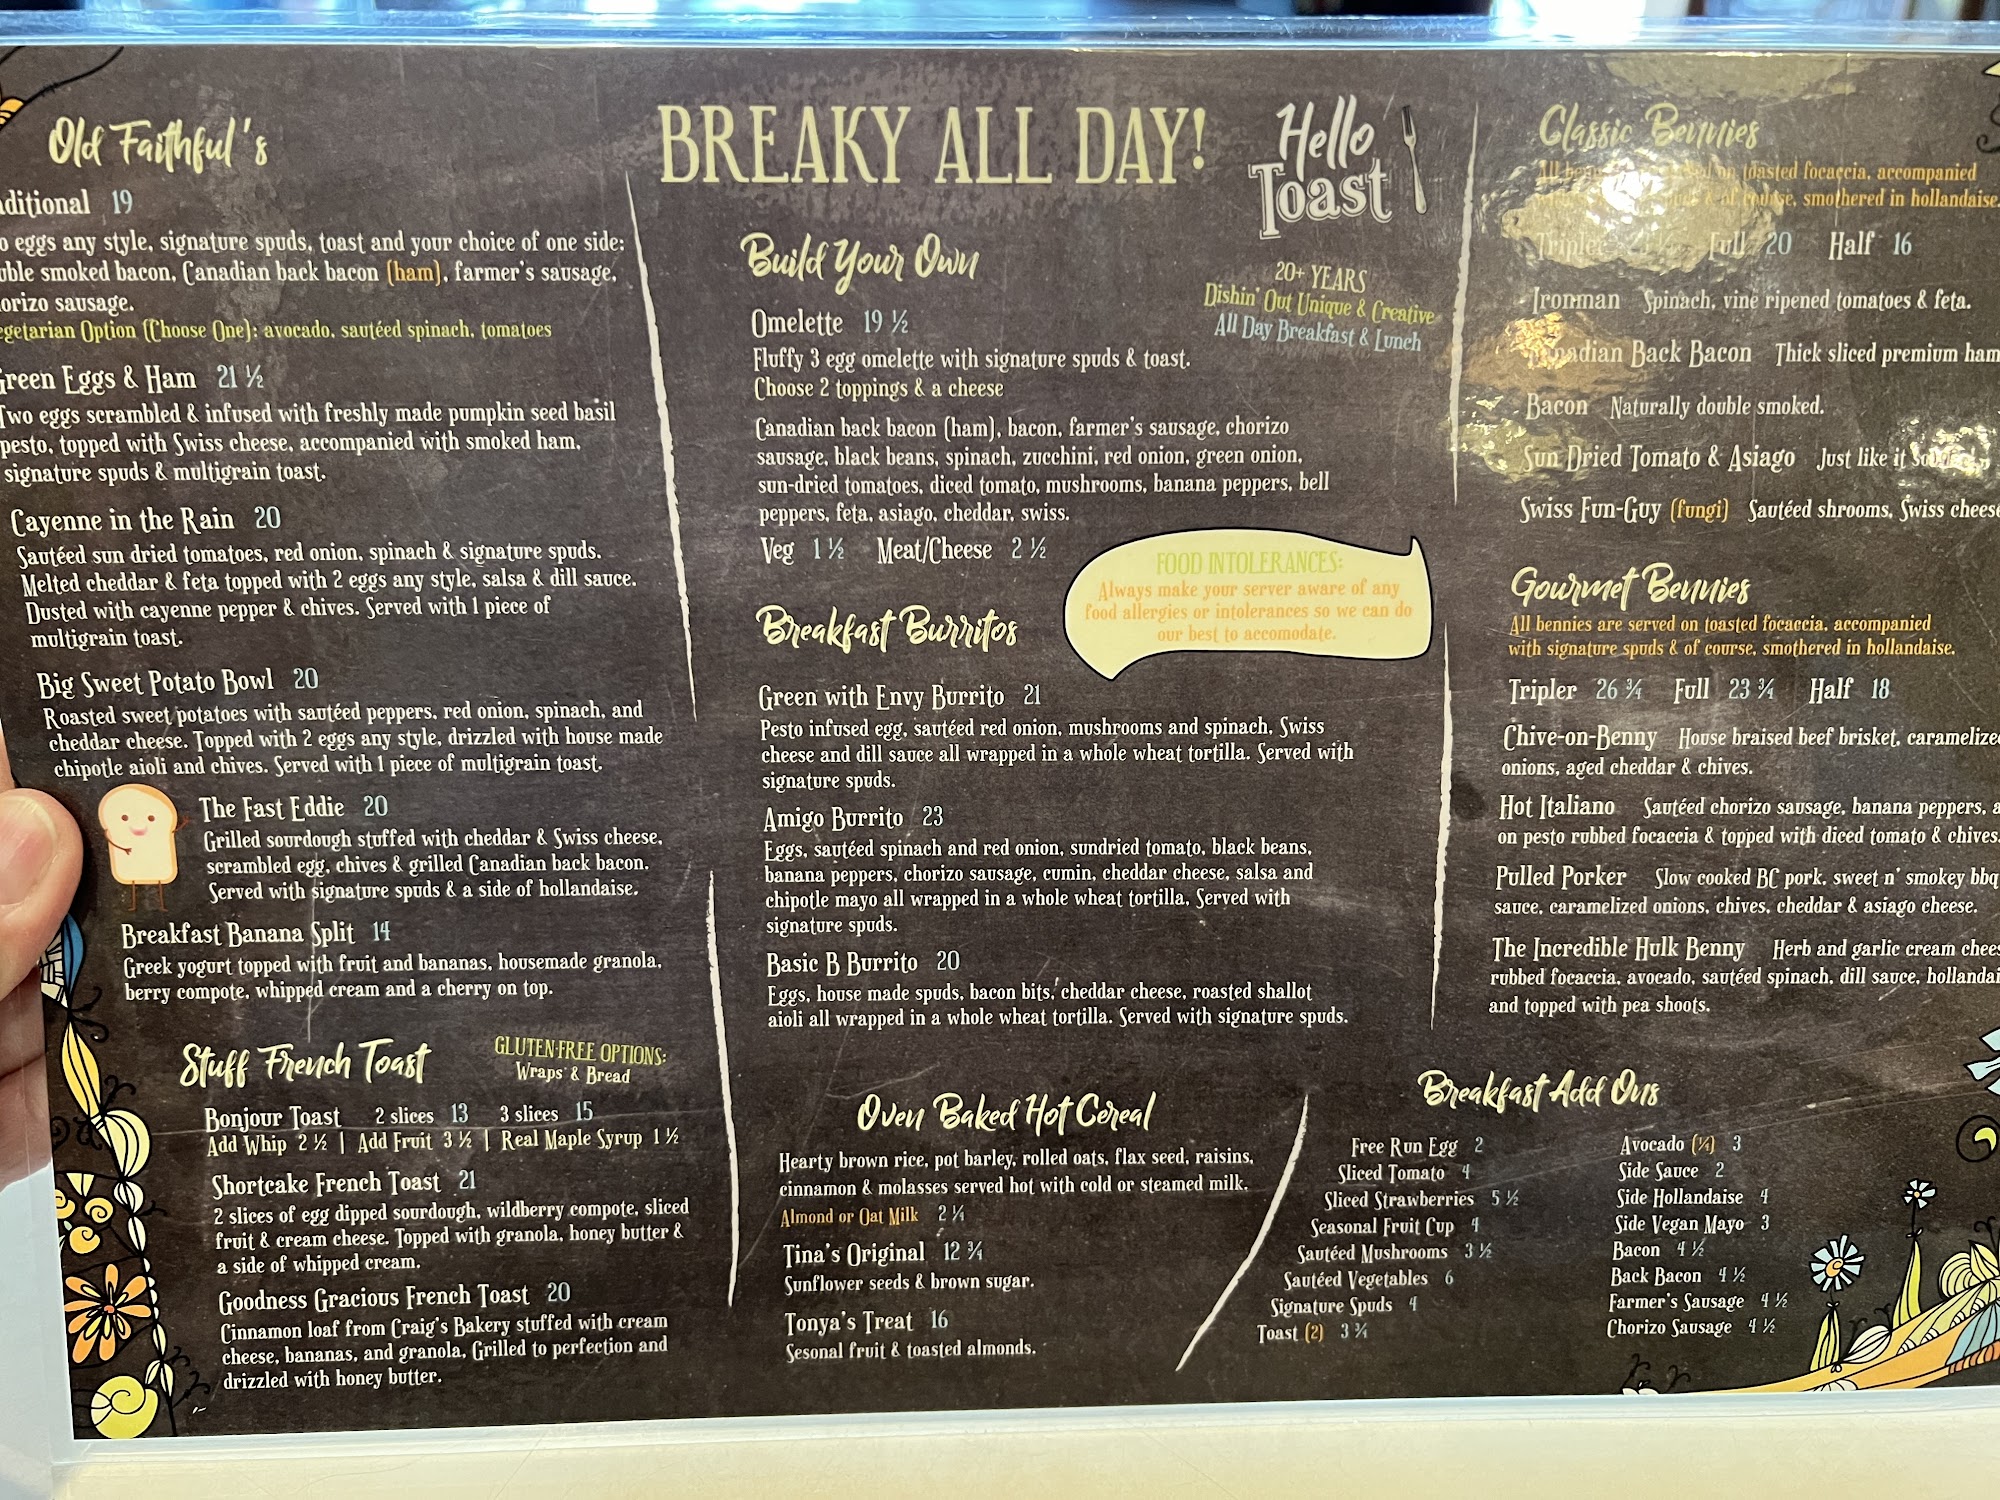 BREAKY ALL DAY!
Hello
Toast
20+ YEARS
Dishin' Out Unique & Creative
All Day Breakfast & Lunch
Old Faithful's
19
eggs any style, signature spuds, toast and your choice of one side:
smoked bacon, Canadian back bacon (ham), farmer's sausage,
sausage.
Option (Choose One): avocado, sautéed spinach, tomatoes
Green Eggs & Ham 21 ½
Two eggs scrambled & infused with freshly made pumpkin seed basil
pesto, topped with Swiss cheese, accompanied with smoked ham,
signature spuds & multigrain toast.
Cayenne in the Rain 20
Sautéed sun dried tomatoes, red onion, spinach & signature spuds.
Melted cheddar & feta topped with 2 eggs any style, salsa & dill sauce.
Dusted with cayenne pepper & chives. Served with 1 piece of
multigrain toast.
Big Sweet Potato Bowl 20
Roasted sweet potatoes with sautéed peppers, red onion, spinach, and
cheddar cheese. Topped with 2 eggs any style, drizzled with house made
chipotle aioli and chives. Served with 1 piece of multigrain toast.
The Fast Eddie 20
Grilled sourdough stuffed with cheddar & Swiss cheese,
scrambled egg, chives & grilled Canadian back bacon.
Served with signature spuds & a side of hollandaise.
Breakfast Banana Split 14
Greek yogurt topped with fruit and bananas, housemade granola,
berry compote, whipped cream and a cherry on top.
Stuff French Toast
GLUTEN-FREE OPTIONS:
Wraps & Bread
Bonjour Toast 2 slices 13 3 slices 15
Add Whip 2 ½ | Add Fruit 3 ½ | Real Maple Syrup 1 ½
Shortcake French Toast 21
2 slices of egg dipped sourdough, wildberry compote, sliced
fruit & cream cheese. Topped with granola, honey butter &
a side of whipped cream.
Goodness Gracious French Toast 20
Cinnamon loaf from Craig's Bakery stuffed with cream
cheese, bananas, and granola, Grilled to perfection and
drizzled with honey butter.
Build Your Own
Omelette 19 ½
Fluffy 3 egg omelette with signature spuds & toast.
Choose 2 toppings & a cheese
Canadian back bacon (ham), bacon, farmer's sausage, chorizo
sausage, black beans, spinach, zucchini, red onion, green onion,
sun-dried tomatoes, diced tomato, mushrooms, banana peppers, bell
peppers, feta, asiago, cheddar, swiss.
Veg 1 ½ Meat/Cheese 2 ½
FOOD INTOLERANCES:
Always make your server aware of any
food allergies or intolerances so we can do
our best to accomodate.
Breakfast Burritos
Green with Envy Burrito 21
Pesto infused egg, sautéed red onion, mushrooms and spinach, Swiss
cheese and dill sauce all wrapped in a whole wheat tortilla. Served with
signature spuds.
Amigo Burrito 23
Eggs, sautéed spinach and red onion, sundried tomato, black beans,
banana peppers, chorizo sausage, cumin, cheddar cheese, salsa and
chipotle mayo all wrapped in a whole wheat tortilla, Served with
signature spuds.
Basic B Burrito 20
Eggs, house made spuds, bacon bits, cheddar cheese, roasted shallot
aioli all wrapped in a whole wheat tortilla. Served with signature spuds.
Oven Baked Hot Cereal
Hearty brown rice, pot barley, rolled oats, flax seed, raisins,
cinnamon & molasses served hot with cold or steamed milk.
Almond or Oat Milk 2 ¼
Tina's Original 12 ¾
Sunflower seeds & brown sugar.
Tonya's Treat 16
Sesonal fruit & toasted almonds.
Classic Bennies
toasted focaccia, accompanied
of course, smothered in hollandaise.
Tripler Full 20 Half 16
Ironman Spinach, vine ripened tomatoes & feta.
Canadian Back Bacon Thick sliced premium ham
Bacon Naturally double smoked.
Sun Dried Tomato & Asiago Just like it
Swiss Fun-Guy (fungi) Sautéed shrooms, Swiss cheese
Gourmet Bennies
All bennies are served on toasted focaccia, accompanied
with signature spuds & of course, smothered in hollandaise.
Tripler 26 ¾ Full 23 ¾ Half 18
Chive-on-Benny House braised beef brisket, caramelized
onions, aged cheddar & chives.
Hot Italiano Sautéed chorizo sausage, banana peppers,
on pesto rubbed focaccia & topped with diced tomato & chives.
Pulled Porker Slow cooked BC pork, sweet n' smokey bbq
sauce, caramelized onions, chives, cheddar & asiago cheese.
The Incredible Hulk Benny Herb and garlic cream
rubbed focaccia, avocado, sautéed spinach, dill sauce,
and topped with pea shoots.
Breakfast Add Ons
Free Run Egg 2
Sliced Tomato 4
Sliced Strawberries 5 ½
Seasonal Fruit Cup 4
Sautéed Mushrooms 3 ½
Sautéed Vegetables 6
Signature Spuds 4
Toast (2) 3 ¾
Avocado (¼) 3
Side Sauce 2
Side Hollandaise 4
Side Vegan Mayo 3
Bacon 4 ½
Back Bacon 4 ½
Farmer's Sausage 4 ½
Chorizo Sausage 4 ½